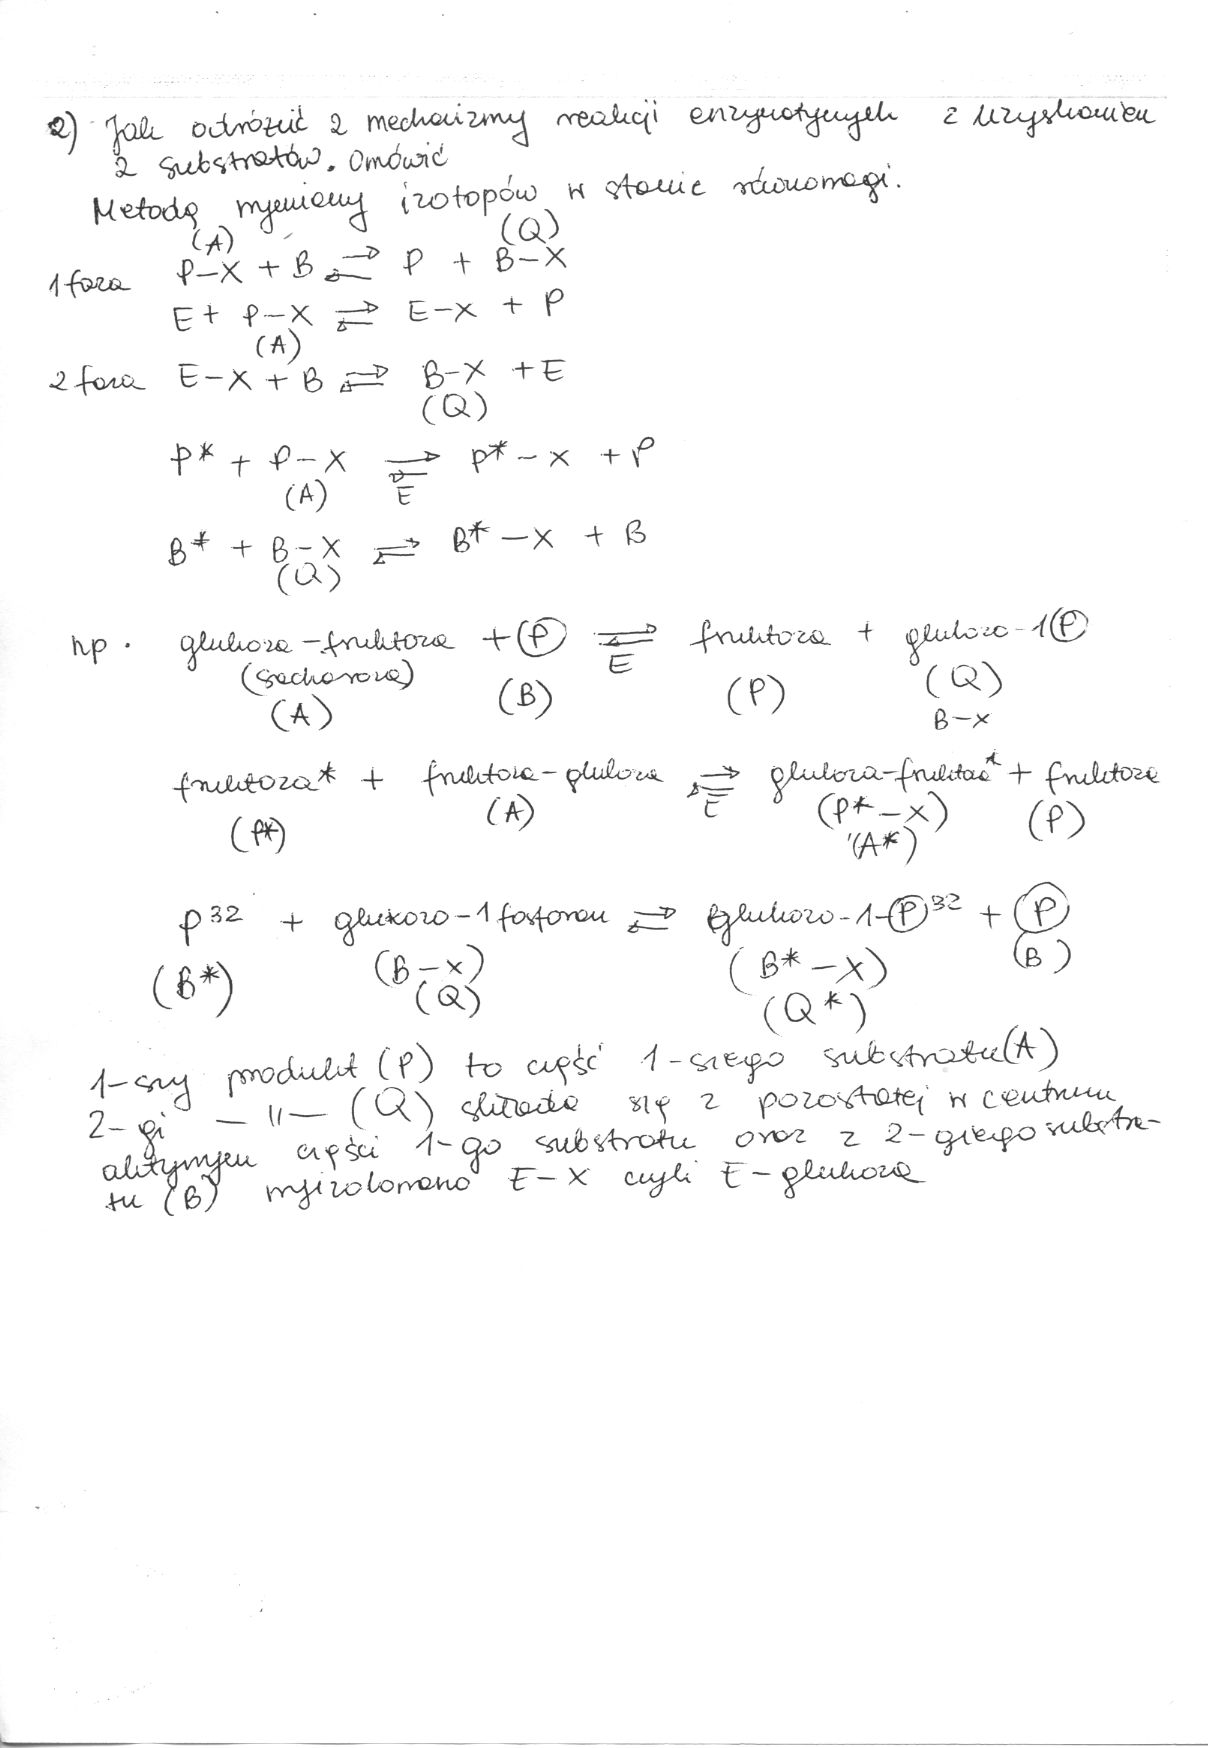 2) Jak odróżnić 2 mechanizmy reakcji enzymatycznych z uzyskaniem
2 substratów. Omówić
Metodą wymiany izotopów w stanie równowagi.
(A) (Q)
1 faza P-X + B ⇌ P + B-X
E + P-X ⇌ E-X + P
(A)
2 faza E-X + B ⇌ B-X + E
(Q)
P* + P-X ⇌ P*-X + P
(A) E
B* + B-X ⇌ B*-X + B
(Q)
np. glukoza-fruktoza + (P) ⇌ fruktoza + glukozo-1(P)
(sacharoza) E
(A) (B) (P) (Q)
B-X
fruktoza* + fruktoza-glukoza ⇌ glukoza-fruktoza* + fruktoza
(P*) (A) E (P*-X) (P)
(A*)
P32 + glukozo-1fosforan ⇌ glukozo-1-(P)32 + (P)
(B*) (B-X) (B*-X) (B)
(Q) (Q*)
1-szy produkt (P) to część 1-szego substratu (A)
2-gi -"- (Q) składa się z pozostałej w centrum
aktywnym części 1-go substratu oraz z 2-giego substra-
tu (B) wyizolowano E-X czyli E-glukoza